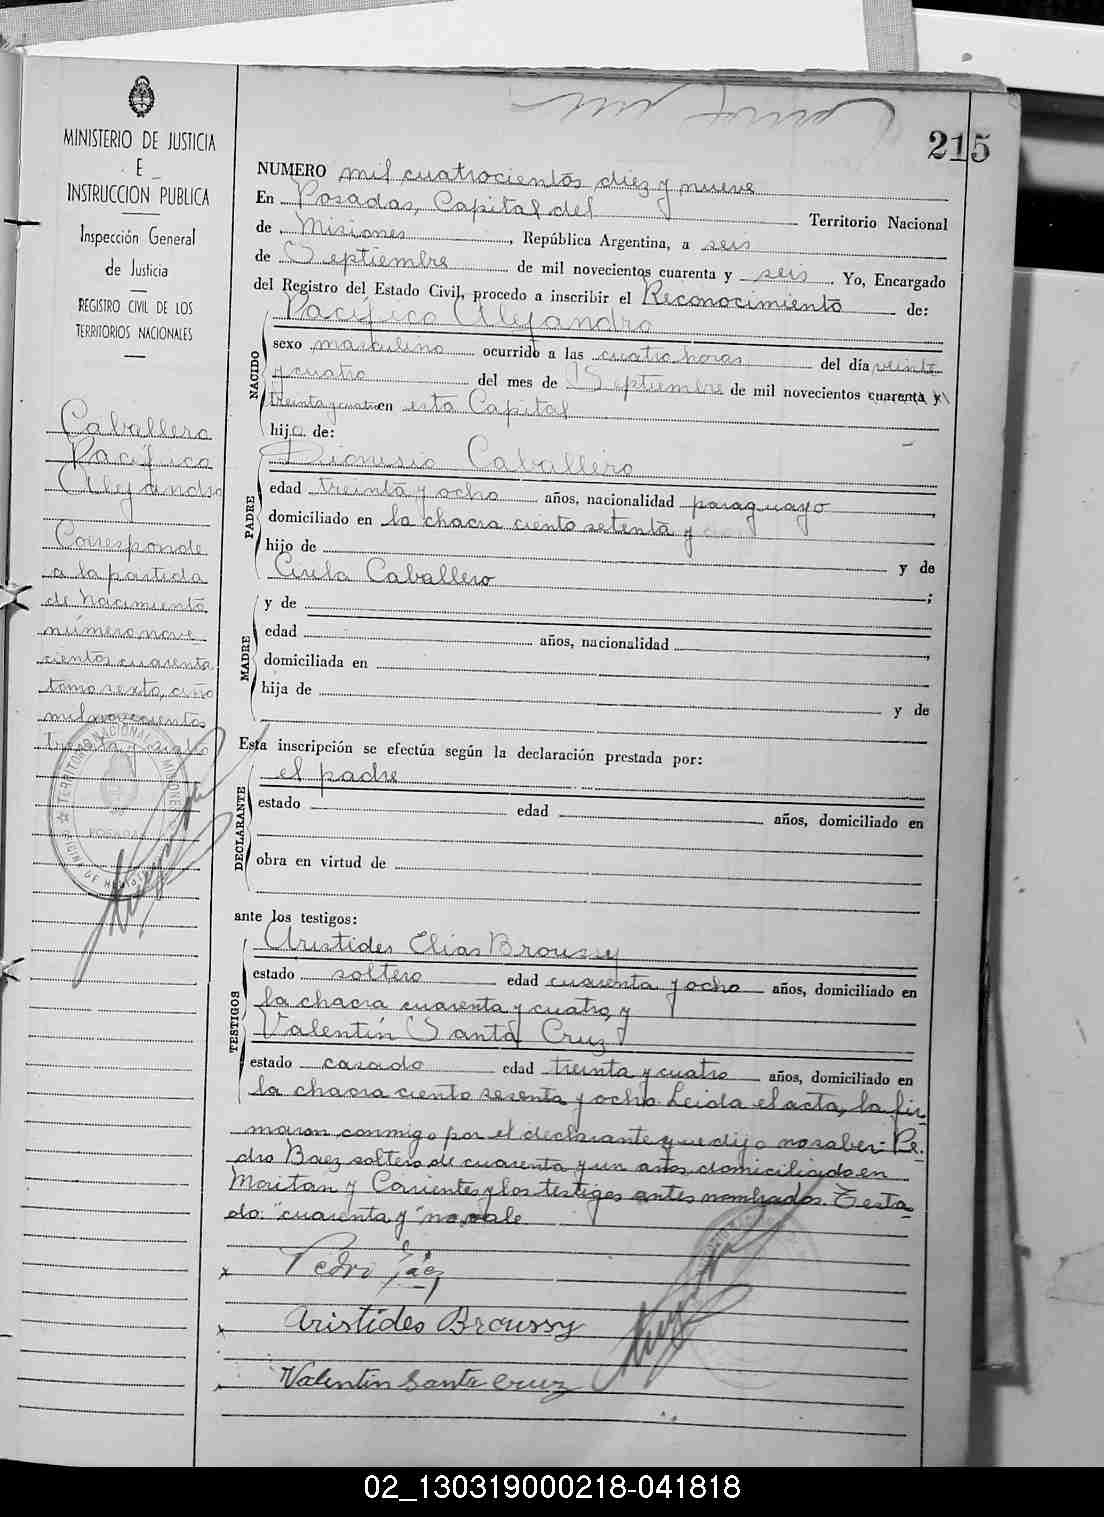 215
MINISTERIO DE JUSTICIA
E
INSTRUCCION PUBLICA
Inspección General
de Justicia
REGISTRO CIVIL DE LOS
TERRITORIOS NACIONALES
Caballero
Pacífico
Alejandro
Corresponde
a la partida
de nacimiento
número nove
cientos cuarenta
tomo sexto, año
mil novecientos
treinta y cuatro
NUMERO mil cuatrocientos diez y nueve
En Posadas, Capital del Territorio Nacional
de Misiones, República Argentina, a seis
de Septiembre de mil novecientos cuarenta y seis. Yo, Encargado
del Registro del Estado Civil, procedo a inscribir el Reconocimiento de:
NACIDO
Pacífico Alejandro
sexo masculino ocurrido a las cuatro horas del día veinte
y cuatro del mes de Septiembre de mil novecientos cuarenta y
treinta y cuatro en esta Capital
hijo de:
PADRE
Dionisio Caballero
edad treinta y ocho años, nacionalidad paraguayo,
domiciliado en la chacra ciento setenta y
hijo de y de
Caballero;
MADRE
y de
edad años, nacionalidad,
domiciliada en
hija de y de
Esta inscripción se efectúa según la declaración prestada por:
DECLARANTE
el padre
estado edad años, domiciliado en
obra en virtud de
ante los testigos:
TESTIGOS
Aristides Elias Broussy
estado soltero edad cuarenta y ocho años, domiciliado en
la chacra cuarenta y cuatro, y
Valentín Santa Cruz
estado casado edad treinta y cuatro años, domiciliado en
la chacra ciento sesenta y ocho. Leida el acta, la fir
maron conmigo por el declarante que dijo no saber: Pe-
dro Baez soltero de cuarenta y un años, domiciliado en
Moritan y Corrientes y los testigos antes nombrados. Testa
do: "cuarenta y" no vale
x Pedro Báez
x Aristides Broussy
x Valentin Santa Cruz
TERRITORIO NACIONAL MISIONES
POSADAS
02_130319000218-041818